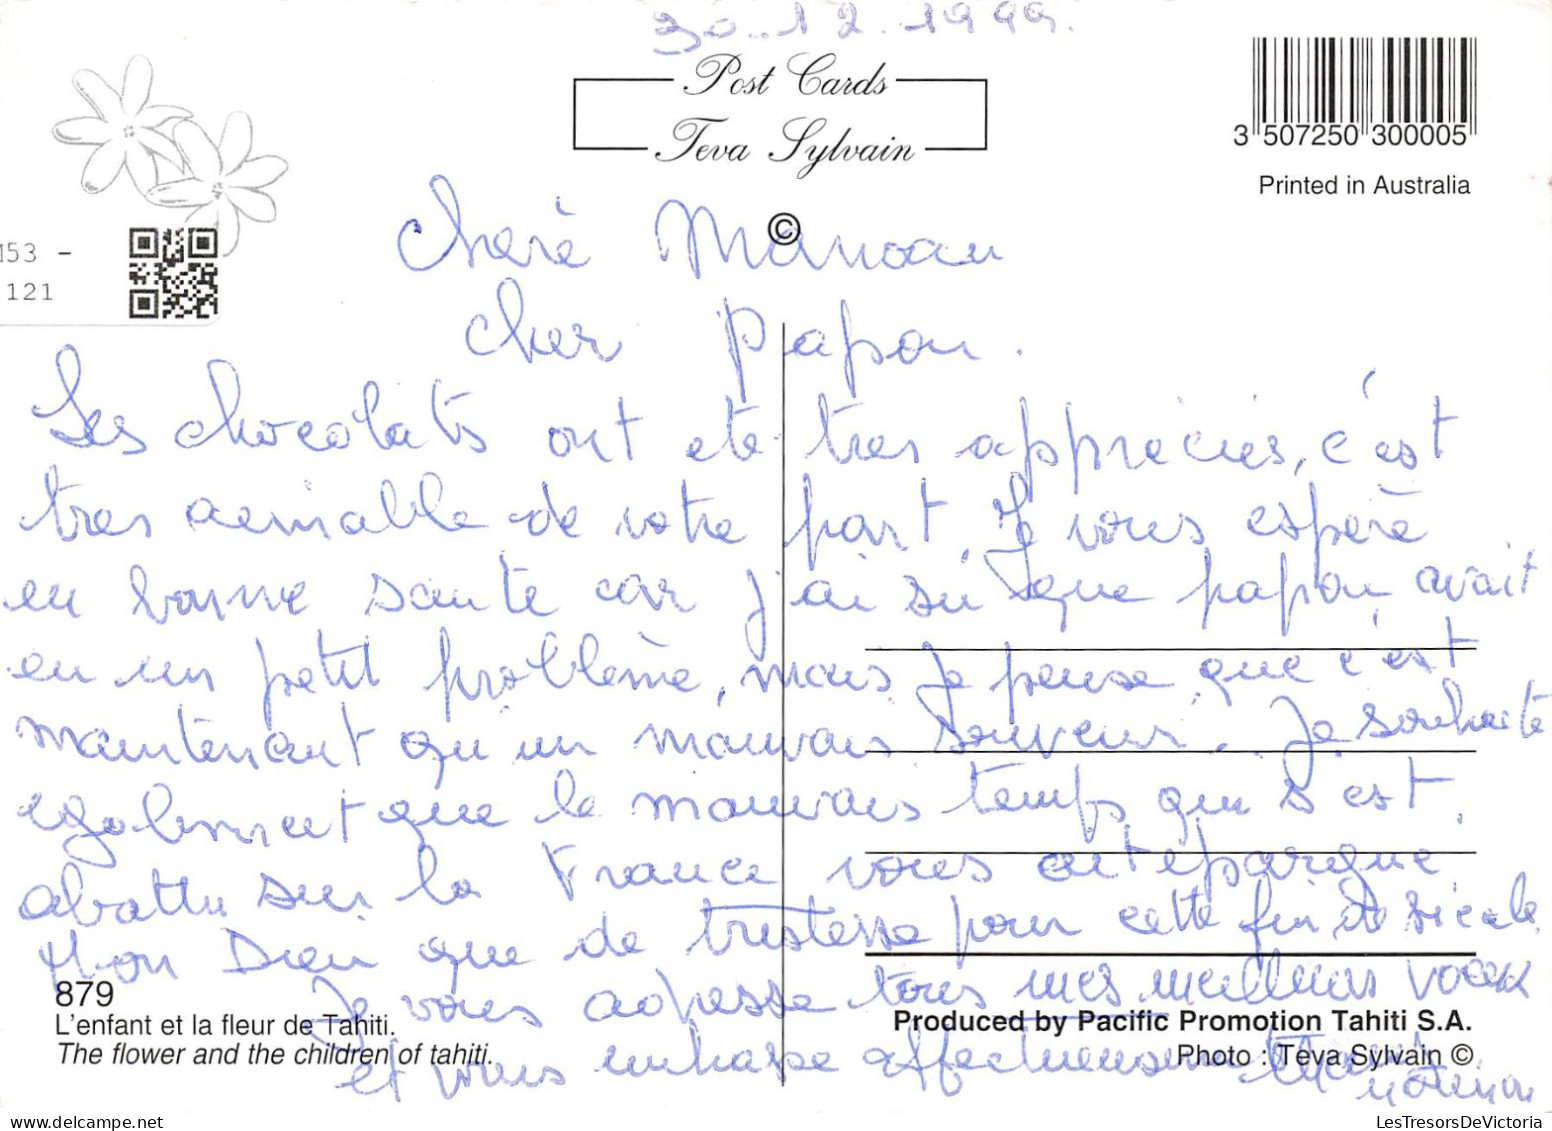 30.12.1999.
Post Cards
Teva Sylvain
3 507250 300005
Printed in Australia
153 -
121
©
Chère Manoan
Cher Papou.
Les chocolats ont ete tres appreciés, c'est
tres aimable de votre part. Je vous espère
en bonne sante car j'ai su que papou avait
eu un petit problème, mais je pense que c'est
maintenant qu'un mauvais souvenir. Je souhaite
egalement que le mauvais temps qui s'est
abattu sur la France vous ait épargné
Mon Dieu que de tristesse pour cette fin de siecle
Je vous adresse tous mes meilleurs voeux
et vous embrasse affectueusement
879
L'enfant et la fleur de Tahiti.
The flower and the children of tahiti.
Produced by Pacific Promotion Tahiti S.A.
Photo : Teva Sylvain ©
LesTresorsDeVictoria